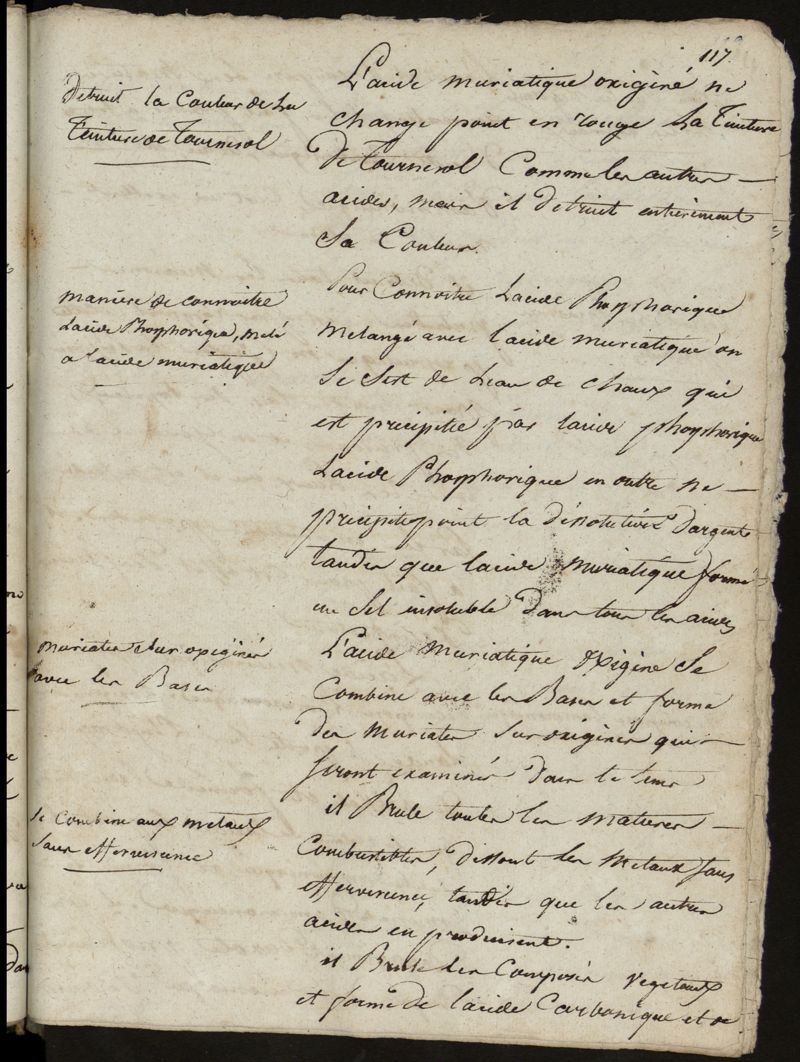 117.
Detruit la Couleur de La
Teinture de Tournesol
L'acide muriatique oxigéné ne
change point en rouge La Teinture
De Tournesol Comme les autres
acides, mais il Detruit entièrement
Sa Couleur.
maniere de connoitre
Lacide Phosphorique, melé
a l'acide muriatique
Pour Connoitre Lacide Phosphorique
Melangé avec l'acide muriatique on
Se Sert de Leau de chaux qui
est precipitée par lacide phosphorique
Lacide Phosphorique en outre ne
precipite point la dissolution D'argent
tandis que lacide muriatique forme
un Sel insoluble Dans tous les acides
muriates Sur oxigénés
avec les Bases
L'acide Muriatique Oxigéné Se
Combine avec les Bases et forme
Des Muriates Sur oxigénés qui
Seront examinés Dans le tems
Se Combine aux metaux
Sans effervescence
il Brule toutes les matieres
Combustibles, dissout les Metaux Sans
effervescence, tandis que les autres
acides en produisent.
il Brule les Composés Vegetaux
et forme de lacide Carbonique et de